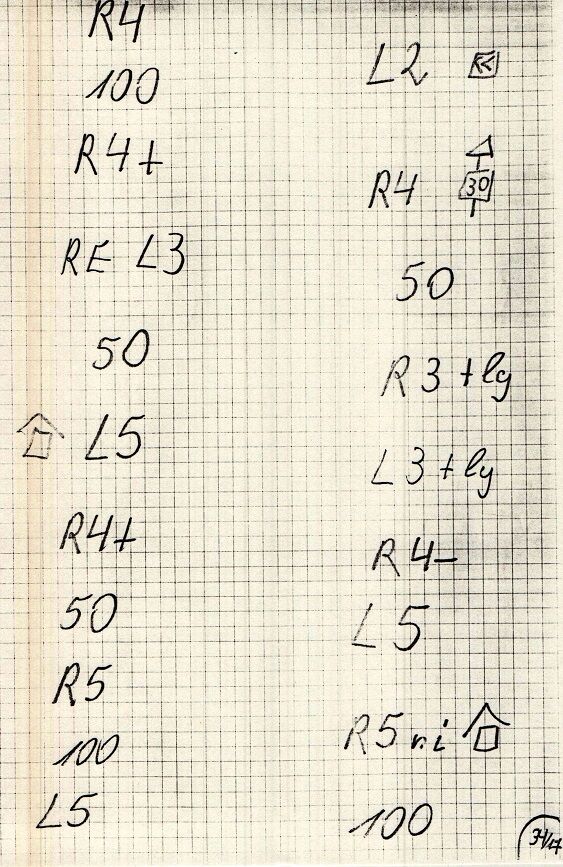 R4
100
R4+
RE L3
50
L5
R4+
50
R5
100
L5
L2 K<
R4 30
50
R3+lg
L3+lg
R4-
L5
R5 ni
100
34/17